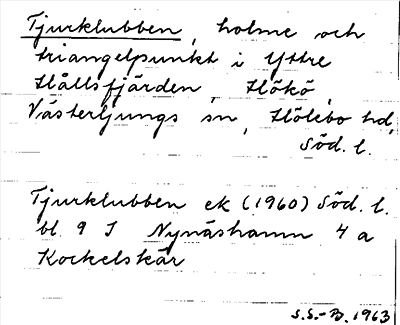 Tjurklubben, holme och
triangelpunkt i Yttre
Hållsfjärden, Hökö,
Västerljungs sn, Hölebo hd,
Söd. l.
Tjurklubben ek (1960) Söd. l.
bl. 9 I Nynäshamn 4 a
Kockelskär
S.S.-B. 1963